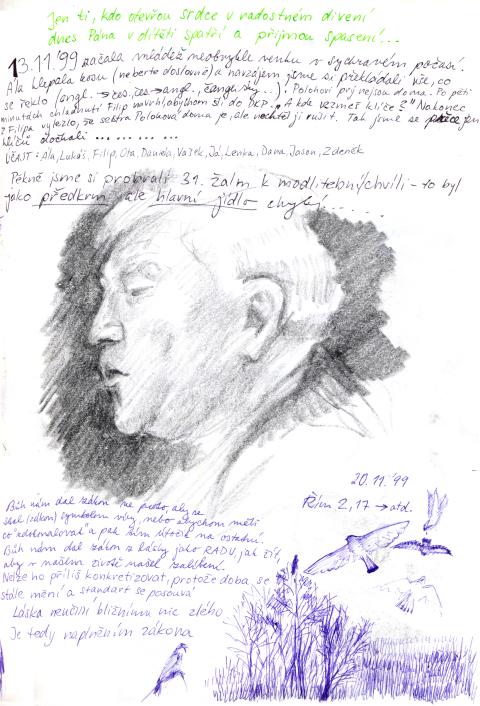 Jen ti, kdo otevřou srdce v radostném divení
dnes Pána v dítěti spatří a přijmou spasení...
13.11.'99 začala mládež neobvykle venku v sychravém počasí.
Ála klepala kosu (neberte doslovně) a navzájem jsme si překládali vše, co
se řeklo (angl. → čes, čes → angl., čanglicky...). Polohovi prý nejsou doma. Po pěti
minutách chladnutí Filip navrhl, abychom šli do PKP. „A kde vezmeš klíče?" Nakonec
z Filipa vylezlo, že sestra Polohová doma je, ale nechtěl ji rušit. Tak jsme se přece jen
klíčů dočkali ... ... ... ... ...
ÚČAST: Ála, Lukáš, Filip, Ota, Daniela, Vašek, Já, Lenka, Dana, Jason, Zdeněk
Pěkně jsme si probrali 31. žalm k modlitební chvíli - to byl
jako předkrm, ale hlavní jídlo chybí......
20.11.'99
Řím 2,17 → atd.
Bůh nám dal zákon ne proto, aby se
stal (zákon) symbolem víry, nebo abychom měli
co a pak tím útočit na ostatní.
Bůh nám dal zákon z lásky jako RADU, jak žít,
aby v našem životě našel zalíbení.
Nelze ho příliš konkretizovat, protože doba se
stále mění a standart se posouvá
Láska neučiní bližnímu nic zlého
Je tedy naplněním zákona